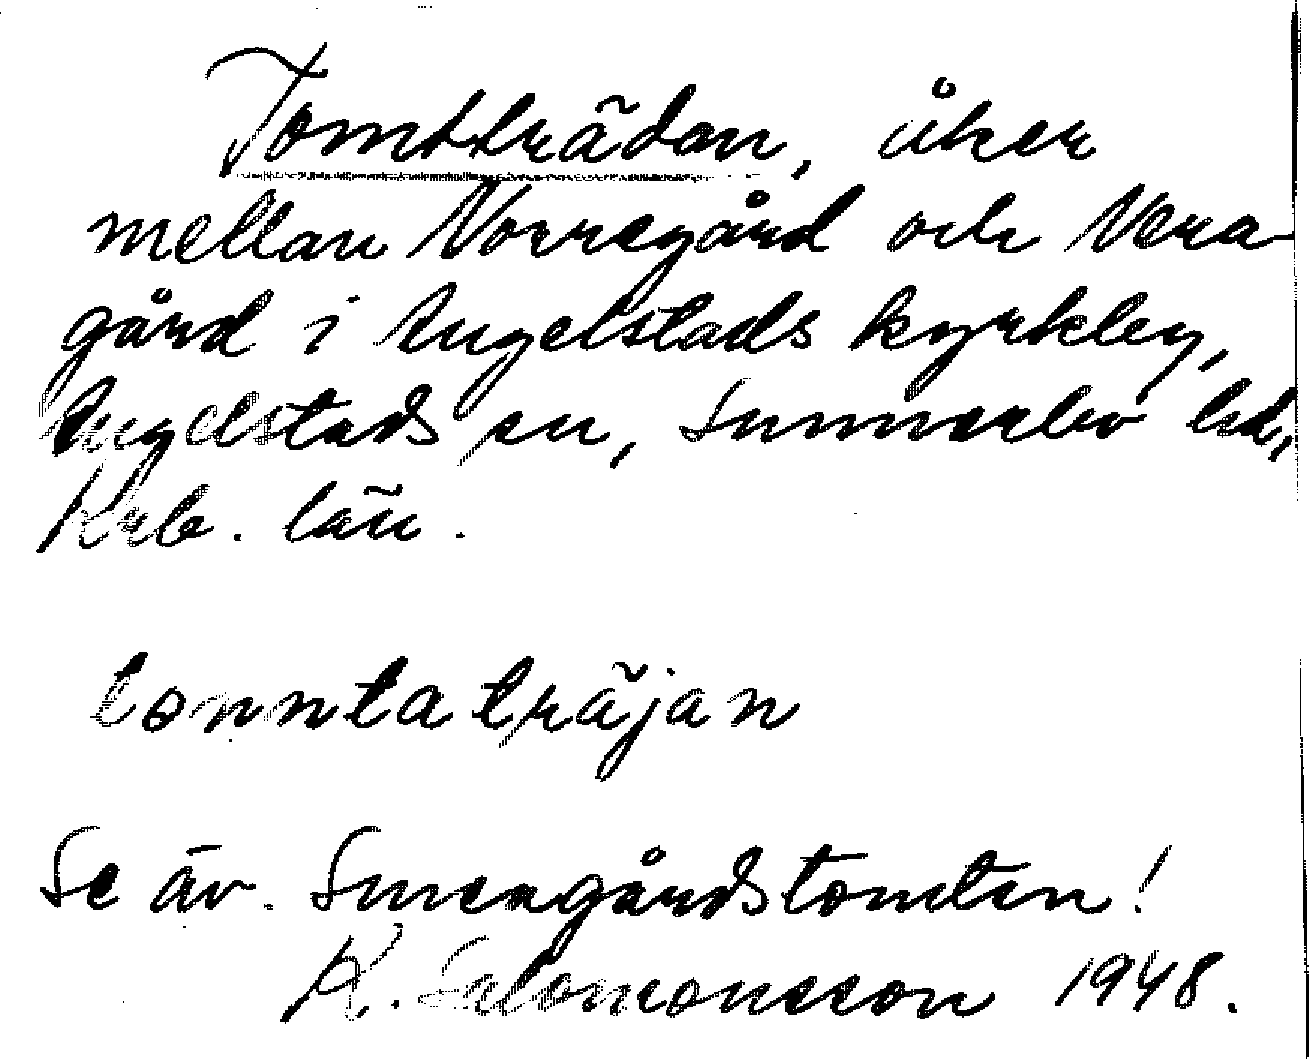 Tomtträdan, åker
mellan Norregård och Nera-
gård i Angelstads kyrkby,
Angelstads sn, Sunnerbo hd,
Krb. län.
tonnta träjan
Se äv. Smeagårdstomten!
K. Salomonsson 1948.